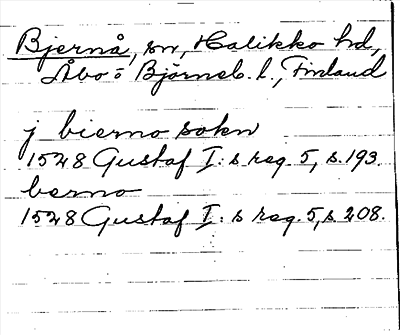 Bjernå, sn, Halikko hd,
Åbo o Björneb. l., Finland
j bierno sokn
1528 Gustaf I: s reg. 5, s. 193.
berno
1528 Gustaf I: s reg. 5, s. 208.